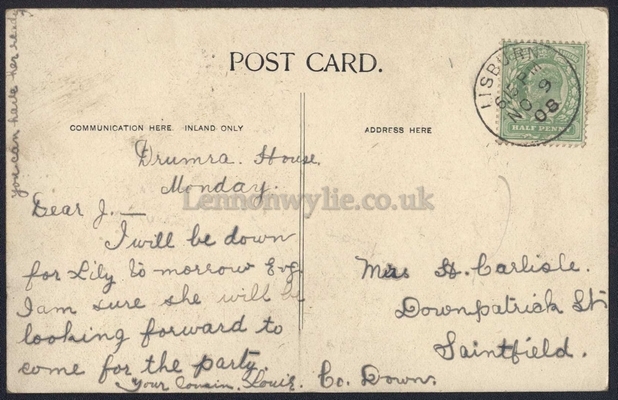 you can have her ready
POST CARD.
COMMUNICATION HERE. INLAND ONLY
ADDRESS HERE
LISBURN
6 15 PM
NO 9
08
HALF PENNY
Drumra House,
Monday.
Lennonwylie.co.uk
Dear J. —
I will be down
for Lily to morrow Evg
I am sure she will be
looking forward to
come for the party.
Your cousin, Louie.
Mrs H. Carlisle.
Downpatrick St
Saintfield.
Co. Down.